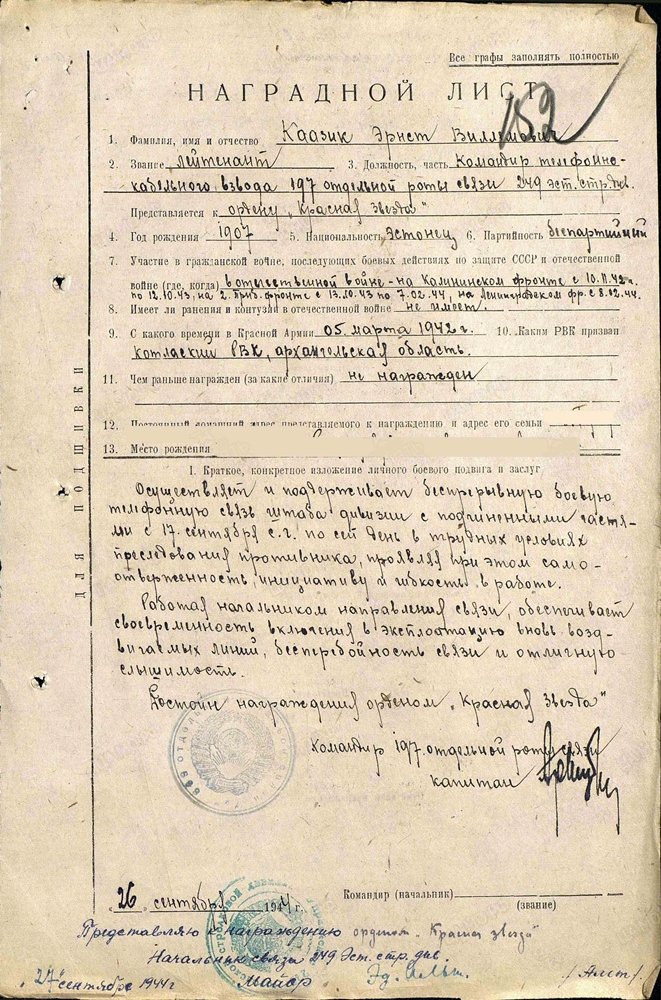 Все графы заполнять полностью
НАГРАДНОЙ ЛИСТ
152
1. Фамилия, имя и отчество Каазик Эрнст Виллемович
2. Звание лейтенант 3. Должность, часть Командир телефонно-
кабельного взвода 197 отдельной роты связи 249 эст. стр. див.
Представляется к ордену „Красная звезда"
4. Год рождения 1907 5. Национальность Эстонец 6. Партийность беспартийный
7. Участие в гражданской войне, последующих боевых действиях по защите СССР и отечественной
войне (где, когда) в отечественной войне - на Калининском фронте с 10.11.42 г.
по 12.10.43, на 2 Приб. фронте с 13.10.43 по 7.02.44, на Ленинградском фр. с 8.02.44.
8. Имеет ли ранения и контузии в отечественной войне не имеет.
9. С какого времени в Красной Армии 05 марта 1942 г. 10. Каким РВК призван
Котласский РВК, архангельская область.
11. Чем раньше награжден (за какие отличия) не награжден
12. Постоянный домашний адрес представляемого к награждению и адрес его семьи
13. Место рождения
I. Краткое, конкретное изложение личного боевого подвига и заслуг
Осуществляет и поддерживает беспрерывную боевую
телефонную связь штаба дивизии с подчиненными частя-
ми с 17. сентября с.г. по сей день в трудных условиях
преследования противника, проявляя при этом само-
отверженность, инициативу и гибкость в работе.
Работая начальником направления связи, обеспечивает
своевременность включения в эксплоатацию вновь возд-
вигаемых линий, бесперебойность связи и отличную
слышимость.
Достоин награждения орденом „Красная Звезда"
Командир 197. отдельной роты связи
капитан
ДЛЯ ПОДШИВКИ
26 сентября 1944 г.
Командир (начальник)
(звание)
Представляю к награждению орденом „Красная звезда"
Начальник связи 249 Эст. стр. див.
„27" сентября 1944 г. Майор